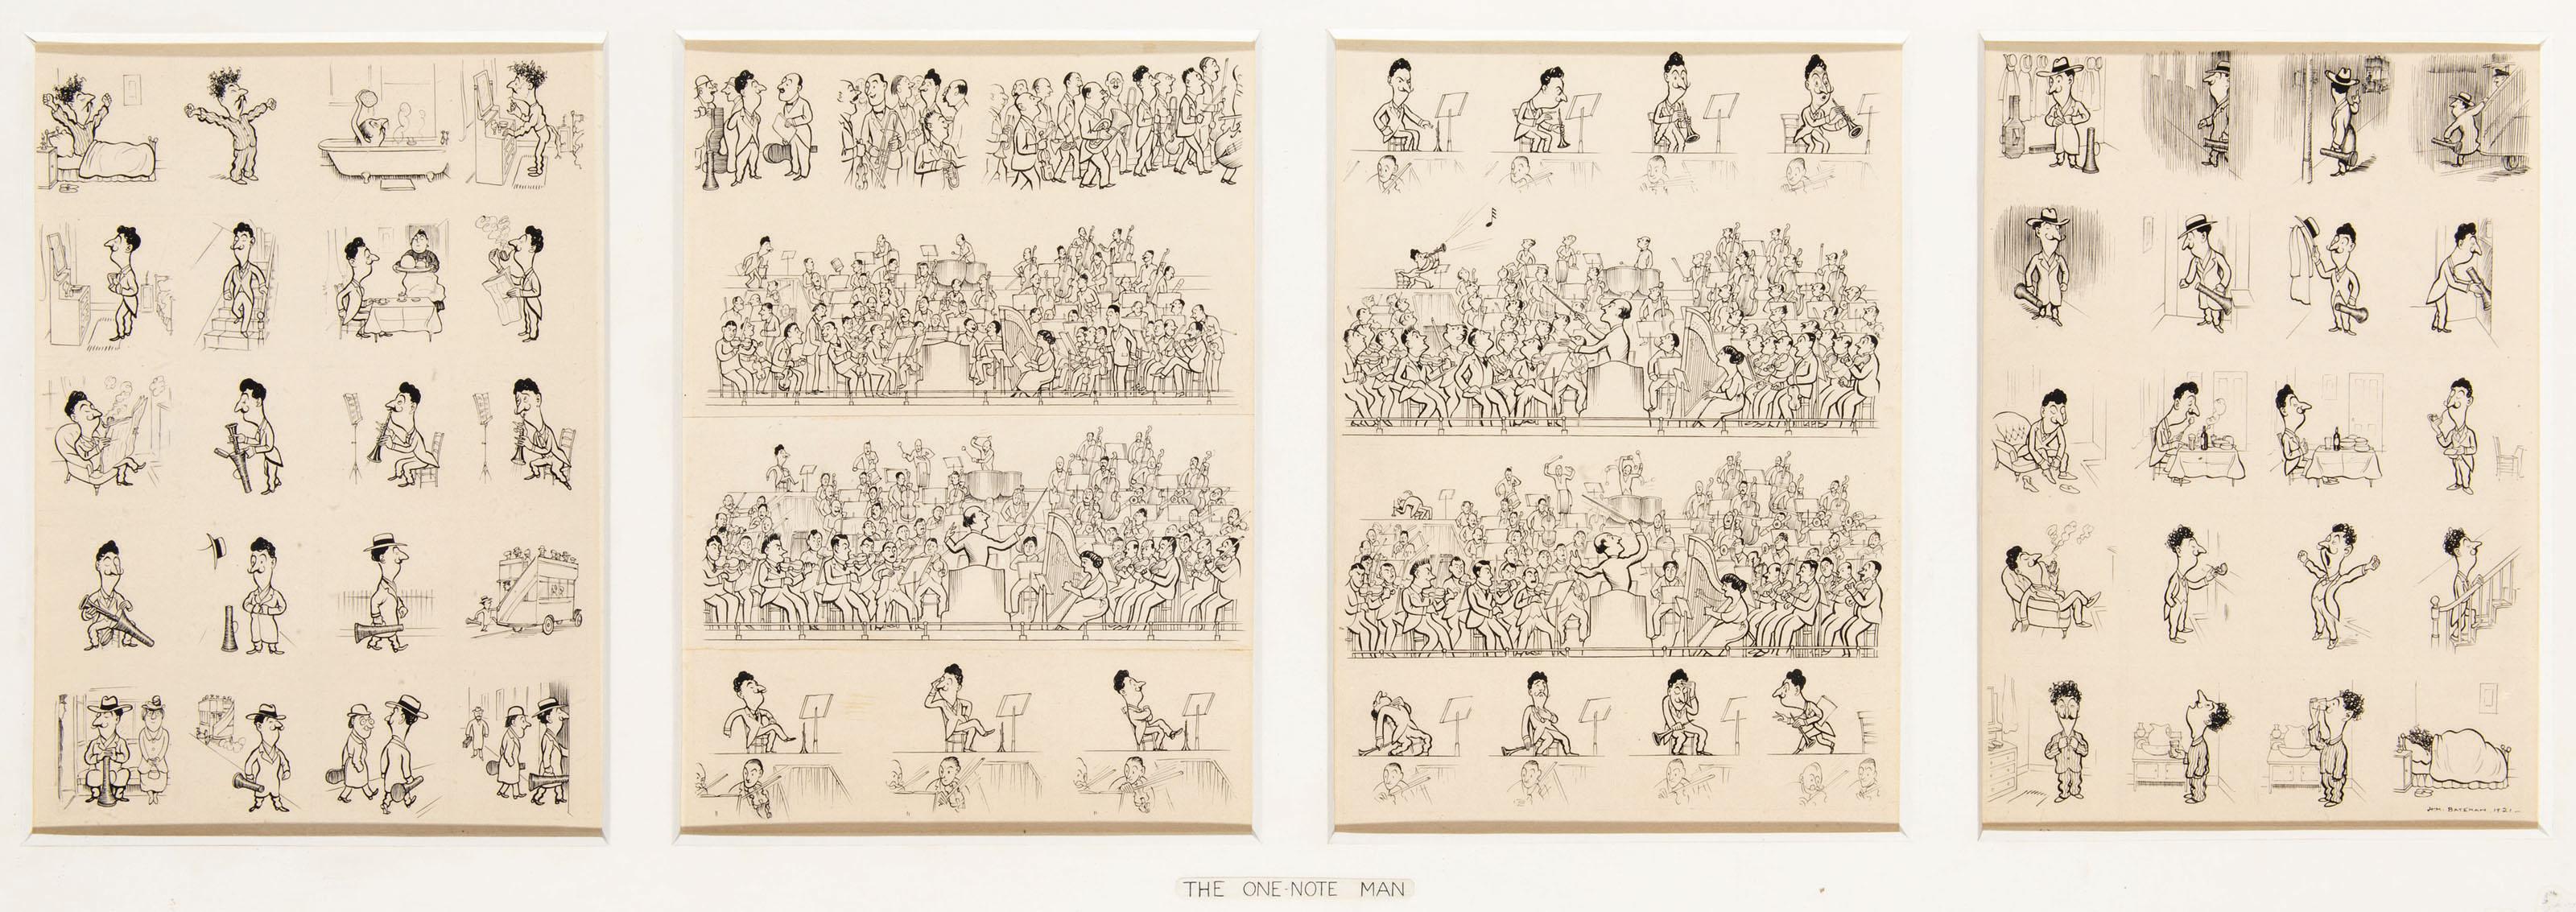 H.M. BATEMAN 1921
THE ONE-NOTE MAN